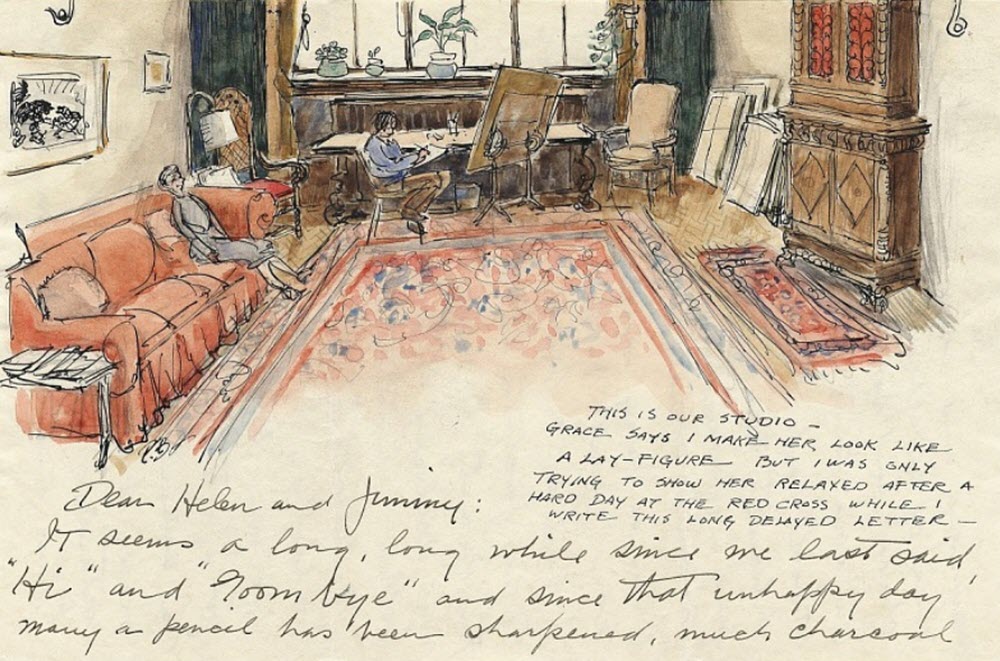 THIS IS OUR STUDIO —
GRACE SAYS I MAKE HER LOOK LIKE
A LAY-FIGURE BUT I WAS ONLY
TRYING TO SHOW HER RELAXED AFTER A
HARD DAY AT THE RED CROSS WHILE I
WRITE THIS LONG DELAYED LETTER —
Dear Helen and Jimmy:
It seems a long, long while since we last said,
"Hi" and "Goom bye" and since that unhappy day
many a pencil has been sharpened, much charcoal